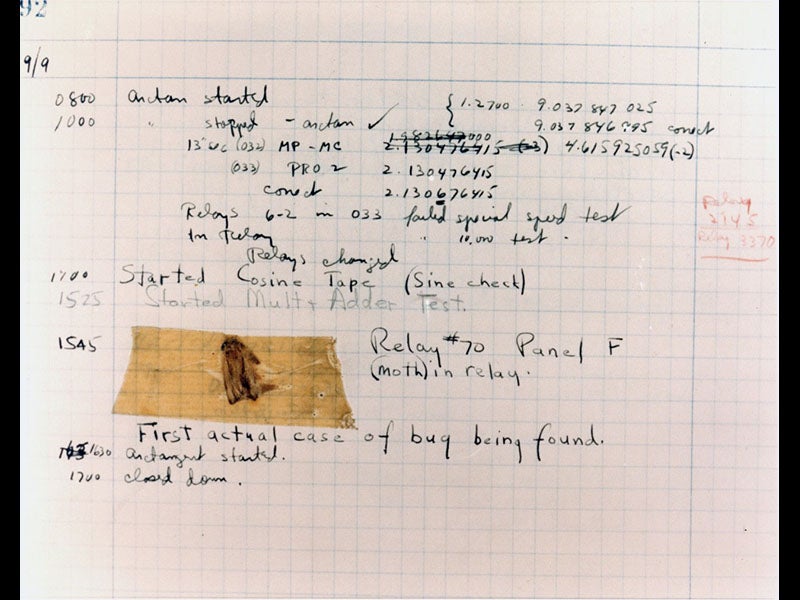 92
9/9
0800 arctan started { 1.2700 9.037 847 025
1000 " stopped - arctan ✓ 9.037 846 995 conect
1.982647000
(032) MP - MC 2.130476415 (-3) 4.615925059(-2)
(033) PRO 2 2.130476415
conect 2.130676415
Relays 6-2 in 033 failed special speed test
In Relay " 10.000 test .
Relays changed
Relay
2145
Relay 3370
Started Cosine Tape (Sine check)
1525 Started Mult+ Adder Test.
1545 Relay #70 Panel F
(moth) in relay.
First actual case of bug being found.
1630 arctangent started.
1700 closed down.